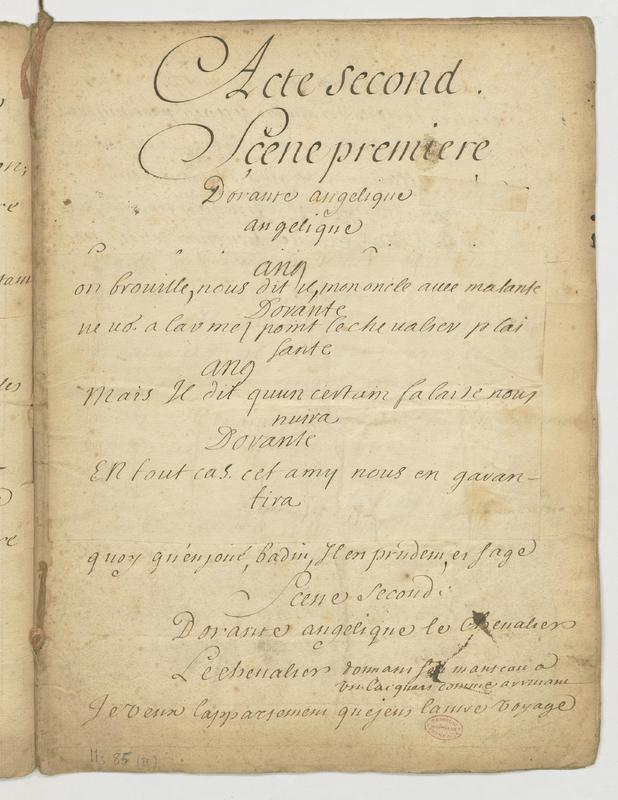 Acte second.
Scene premiere
Dorante angelique
angelique
on brouille, nous dit il, mon oncle avec ma tante
ang
Dorante
ne vo. alarmez point le chevalier plai
sante
ang
Mais Il dit quun certain falaise nous
nuira
Dorante
EN tout cas. cet amy nous en garan-
tira
quoy qu'enjoué, badin, Il en prudent, et sage
Scene second:
Dorante angelique le chevalier
Le chevalier donnant son manteau a
un laquais comme arrivant
Je veux l'appartement que jeus lautre voyage
Ms 85 (II)